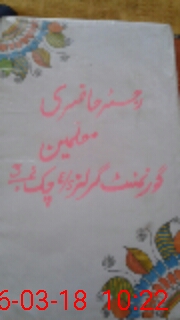 رجسٹر حاضری
معلمین
گورنمنٹ گرلز چک
6-03-18 10:22